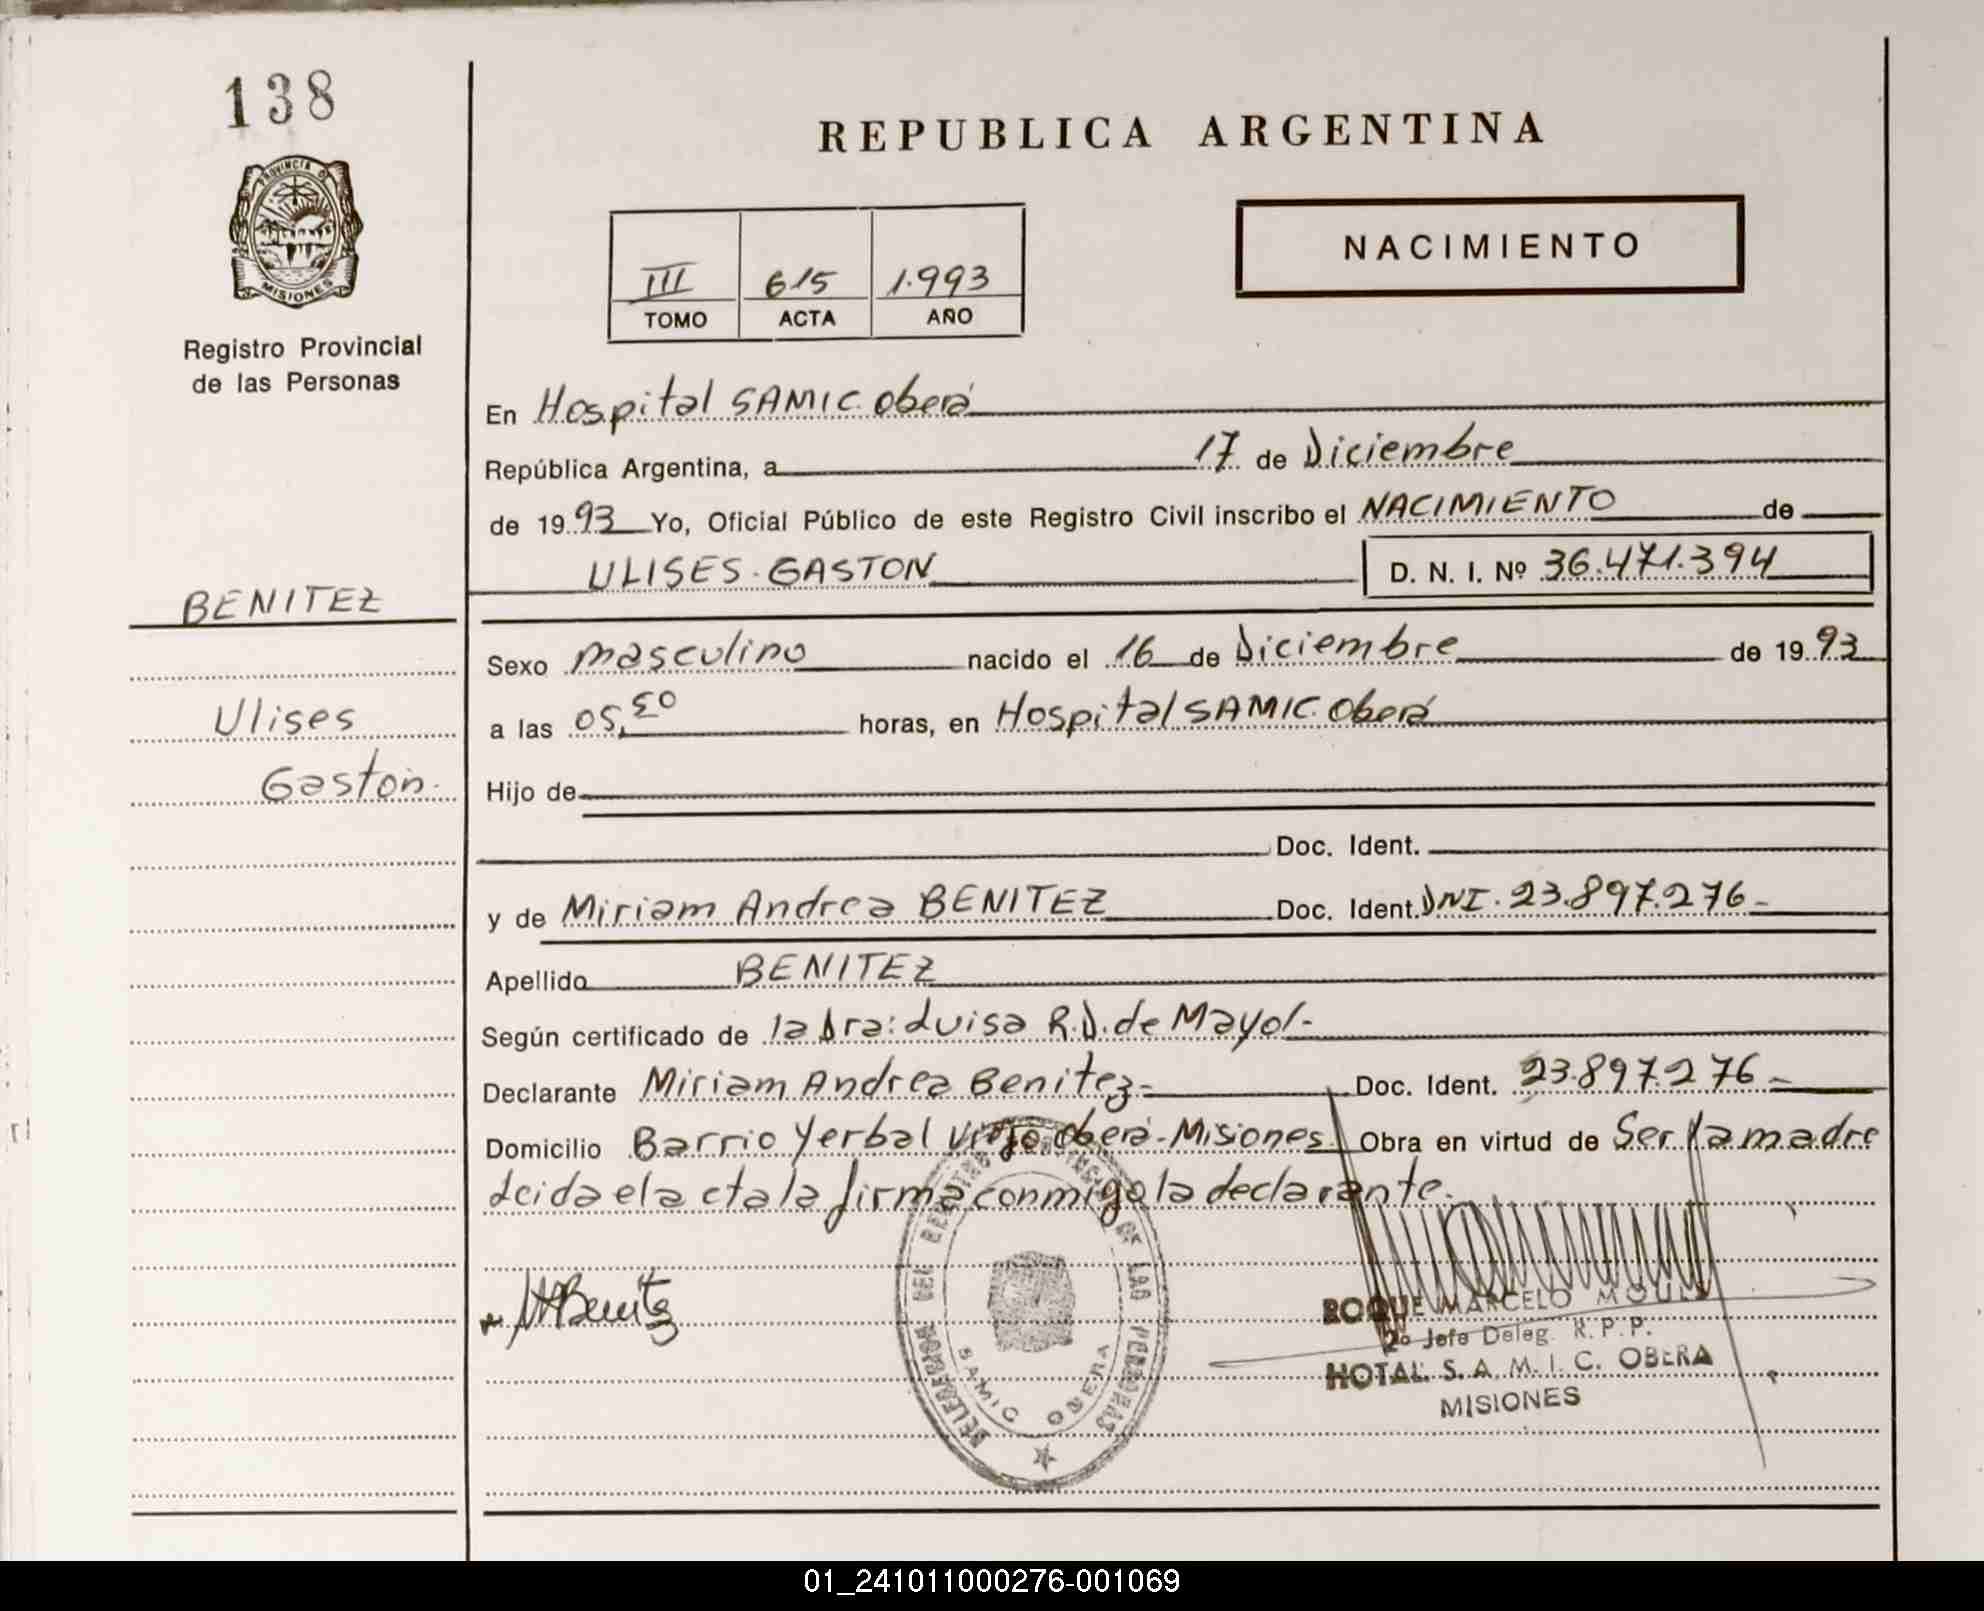 138
PROVINCIA DE
MISIONES
Registro Provincial
de las Personas
BENITEZ
Ulises
Gaston.
REPUBLICA ARGENTINA
NACIMIENTO
III 615 1.993
TOMO ACTA AÑO
En Hospital SAMIC. Oberá
República Argentina, a 17 de Diciembre
de 19 93 Yo, Oficial Público de este Registro Civil inscribo el NACIMIENTO de
ULISES. GASTON D. N. I. Nº 36.471.394
Sexo masculino nacido el 16 de Diciembre de 19 93
a las 05, horas, en Hospital SAMIC. Oberá
Hijo de
Doc. Ident.
y de Miriam Andrea BENITEZ Doc. Ident. DNI. 23.897.276-
Apellido BENITEZ
Según certificado de la Dra: Luisa R.D. de Mayol-
Declarante Miriam Andrea Benitez- Doc. Ident. 23.897.276-
Domicilio Barrio Yerbal Viejo Oberá-Misiones. Obra en virtud de Ser la madre
Leida el acta la firma conmigo la declarante.
Benitez
DELEGACION DEL REGISTRO PROVINCIAL DE LAS PERSONAS
SAMIC OBERA
ROQUE MARCELO
2º Jefe Deleg. R.P.P.
HOTAL. S. A. M. I. C. OBERA
MISIONES
01_241011000276-001069